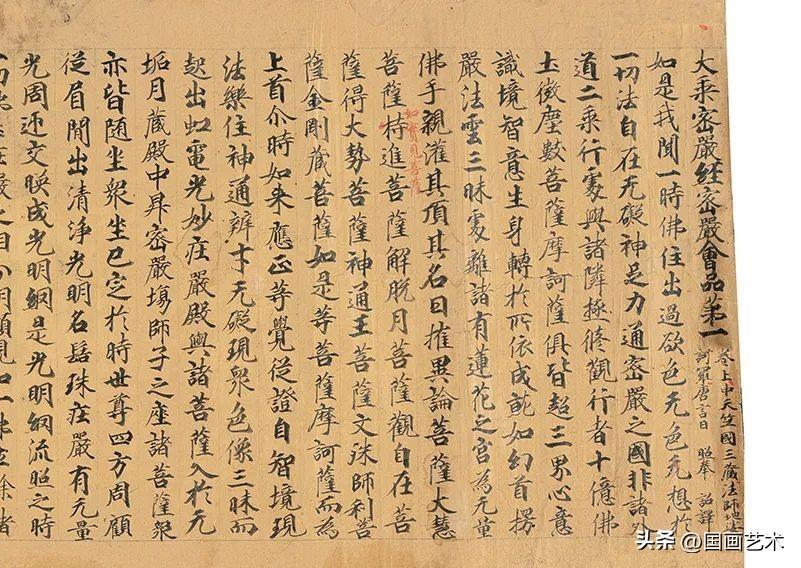 大乘密嚴經密嚴會品第一
卷上中天竺國三藏法師地婆
訶羅唐言日 照奉 詔譯
如是我聞一時佛住出過欲色无色无想於
一切法自在无礙神足力通密嚴之國非諸外
道二乘行處與諸隣極修觀行者十億佛
土微塵數菩薩摩訶薩俱皆超三界心意
識境智意生身轉於所依成就如幻首楞
嚴法雲三昧處離諸有蓮花之宮為无量
佛手親灌其頂其名曰摧異論菩薩大慧
如實見菩薩
菩薩持進菩薩解脫月菩薩觀自在菩
薩得大勢菩薩神通王菩薩文殊師利菩
薩金剛藏菩薩如是等菩薩摩訶薩而為
上首尒時如來應正等覺從證自智境現
法樂住神通辨才无礙現衆色像三昧而
起出虹電光妙莊嚴殿與諸菩薩入於无
垢月藏殿中昇密嚴場師子之座諸菩薩衆
亦皆随坐衆坐已定於時世尊四方周顧
從眉間出清淨光明名髻珠莊嚴有无量
光周迊交暎成光明網是光明網流照之時
头条 @国画艺术